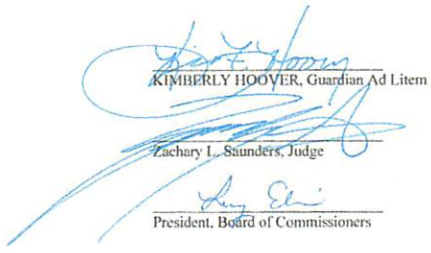 KIMBERLY HOOVER, Guardian Ad Litem
Zachary L. Saunders, Judge
President, Board of Commissioners